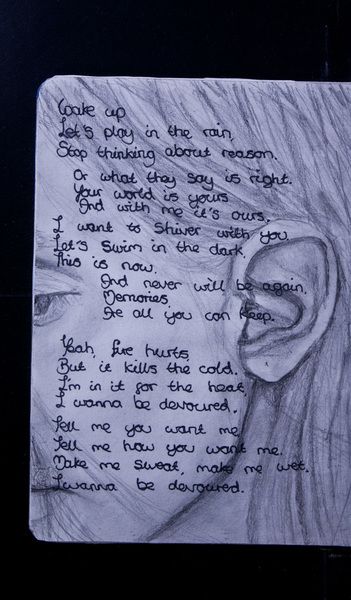 Wake up
Let's play in the rain,
Stop thinking about reason.
Or what they say is right.
Your world is yours
And with me it's ours.
I want to Shiver with you.
Let's Swim in the dark,
This is now.
And never will be again,
Memories,
Are all you can keep.
Yeah, fire hurts,
But it kills the cold.
I'm in it for the heat,
I wanna be devoured,
Tell me you want me,
Tell me how you want me.
Make me sweat, make me wet.
I wanna be devoured.